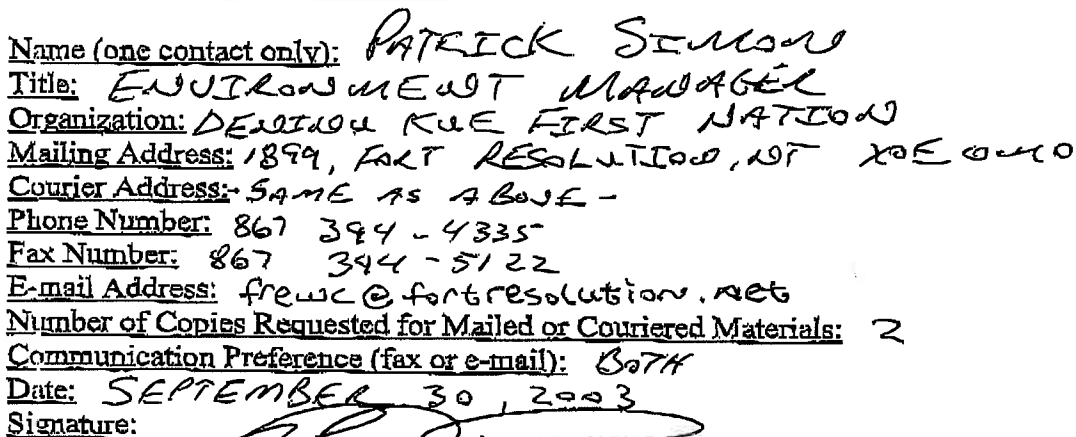 Name (one contact only): PATRICK SIMON
Title: ENVIRONMENT MANAGER
Organization: DENINU KUE FIRST NATION
Mailing Address: 1899, FORT RESOLUTION, NT X0E 0M0
Courier Address:- SAME AS ABOVE -
Phone Number: 867 394-4335
Fax Number: 867 394-5122
E-mail Address: frewc@fortresolution.net
Number of Copies Requested for Mailed or Couriered Materials: 2
Communication Preference (fax or e-mail): BOTH
Date: SEPTEMBER 30, 2003
Signature: